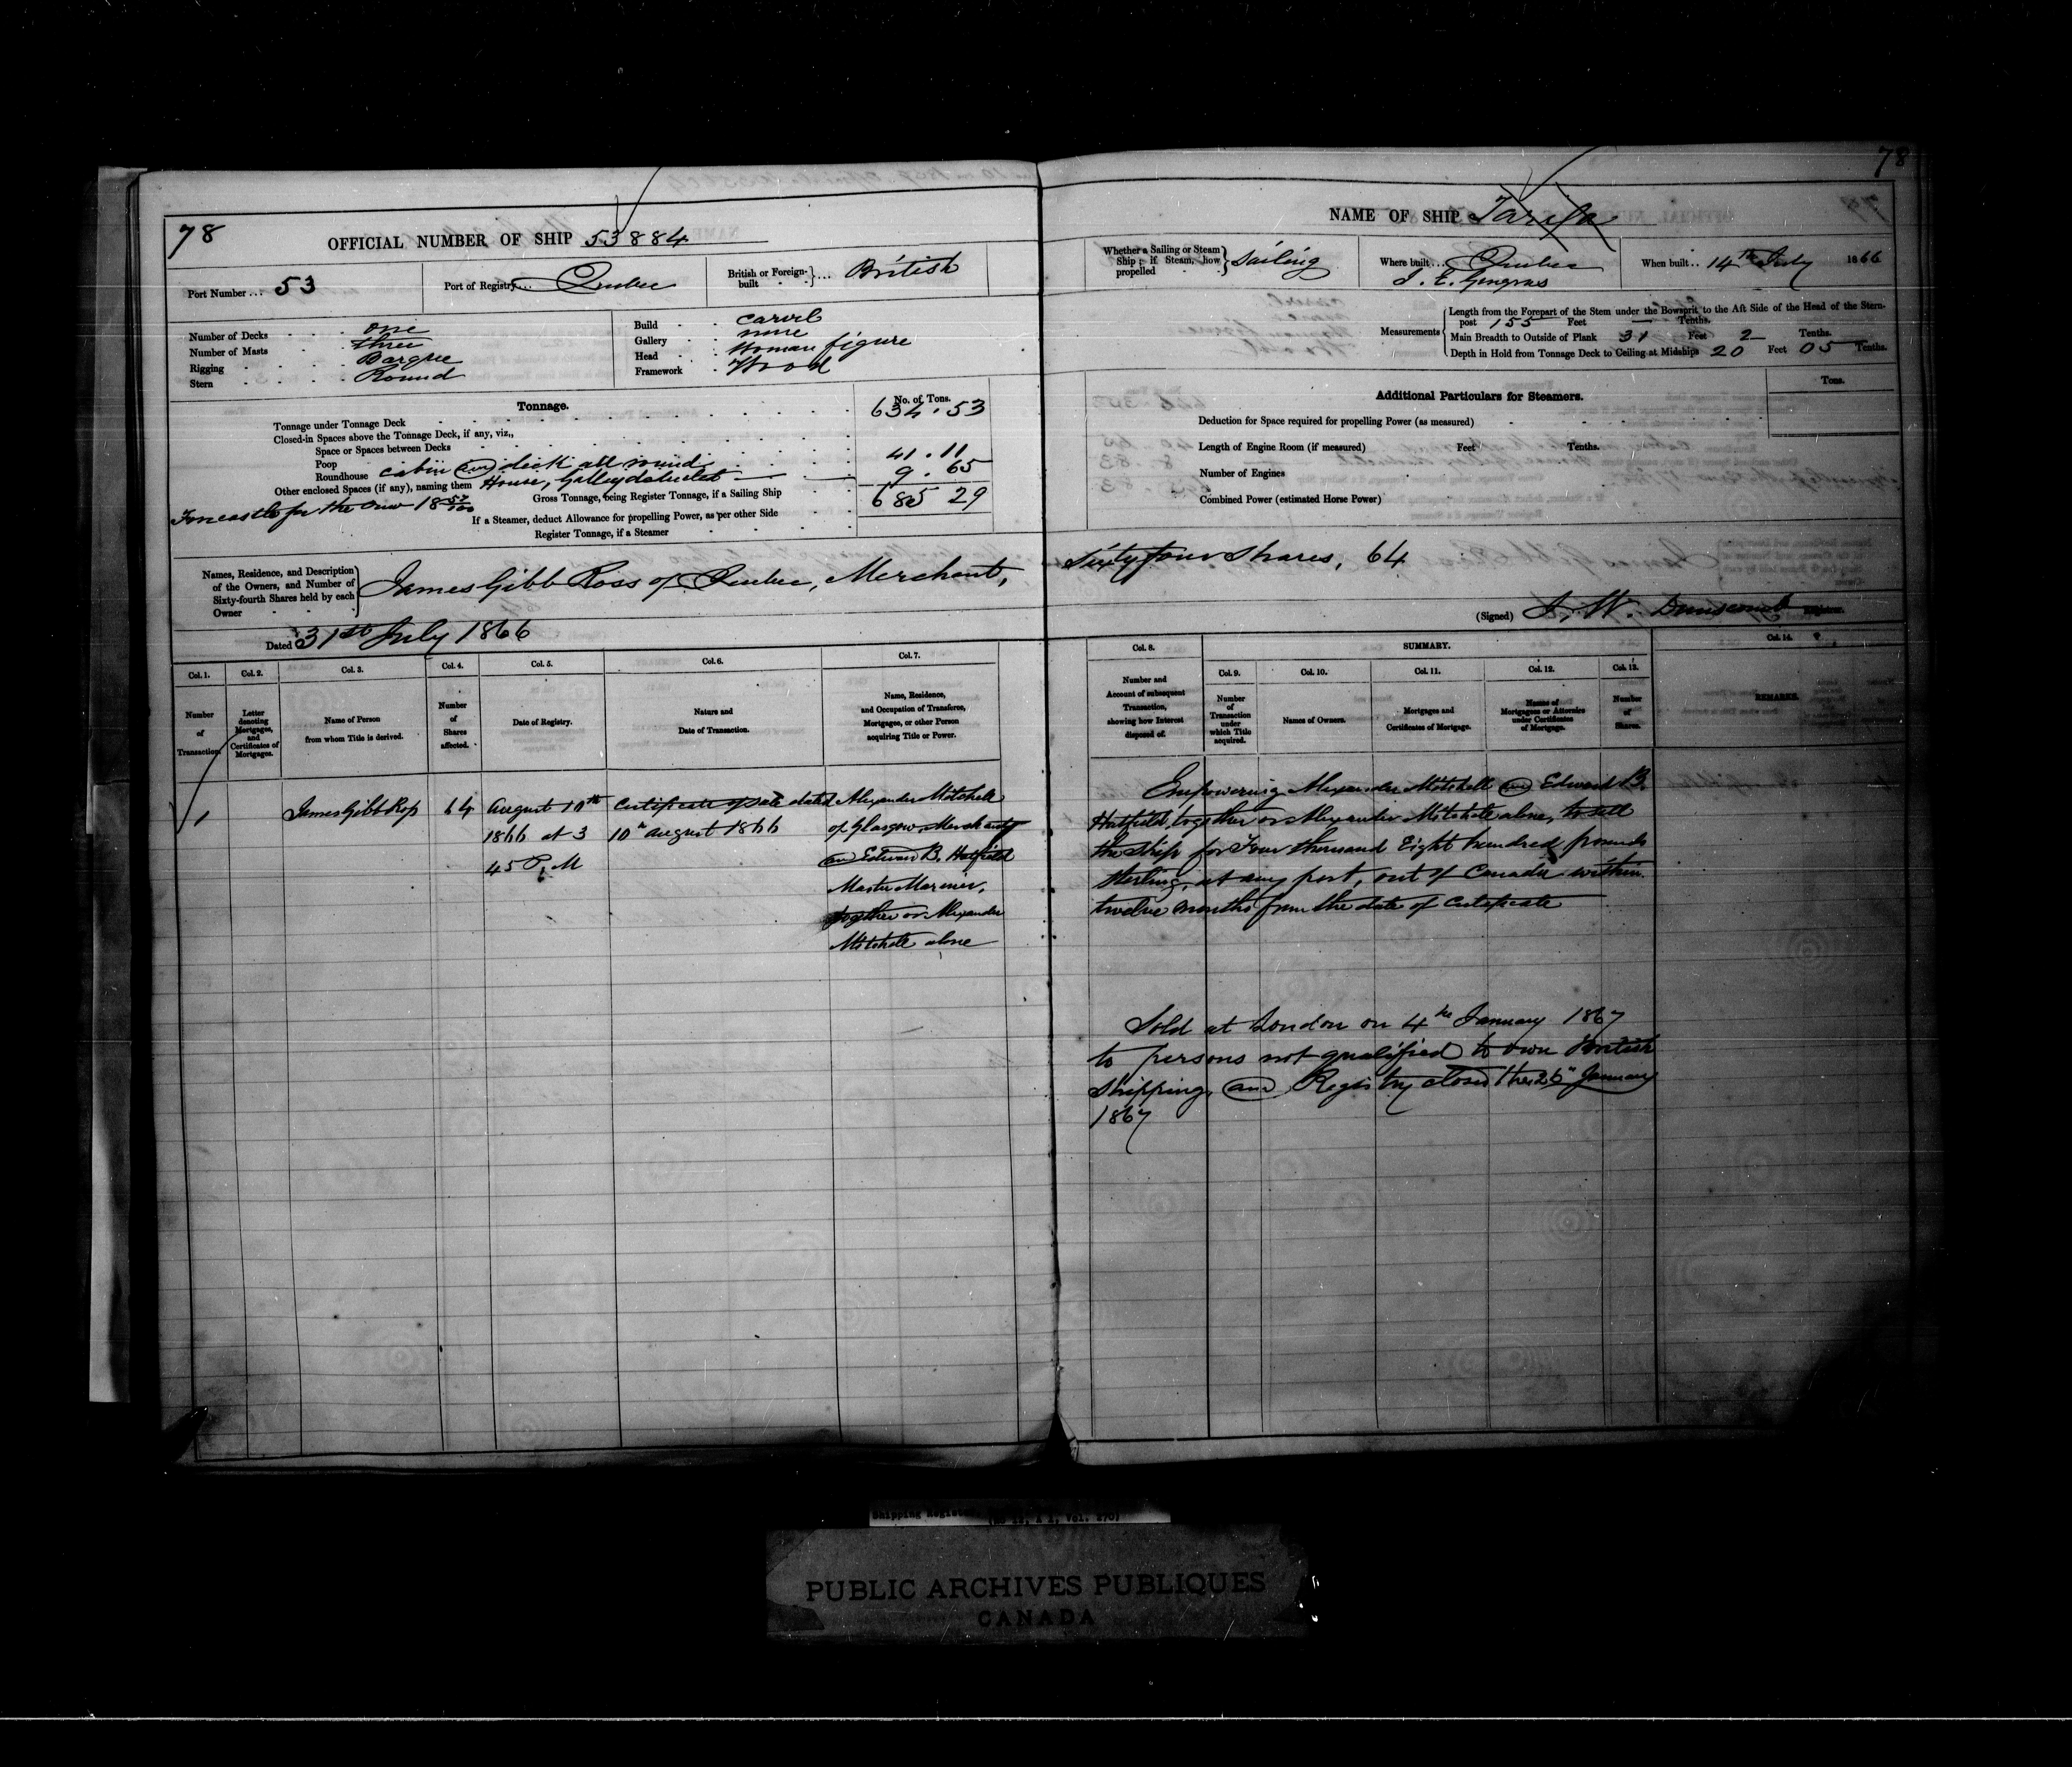 78
OFFICIAL NUMBER OF SHIP 53884
Port Number ... 53
Port of Registry ... Quebec
British or Foreign-built } ... British
Number of Decks one
Number of Masts three
Rigging Barque
Stern Round
Build carvel
Gallery none
Head Woman figure
Framework Wood
Tonnage.
No. of Tons.
Tonnage under Tonnage Deck 634.53
Closed-in Spaces above the Tonnage Deck, if any, viz.,
Space or Spaces between Decks
Poop
Roundhouse cabin on deck all round 41.11
Other enclosed Spaces (if any), naming them House, Galley detached 9.65
Gross Tonnage, being Register Tonnage, if a Sailing Ship 685 29
Forecastle for the crew 18 57/100
If a Steamer, deduct Allowance for propelling Power, as per other Side
Register Tonnage, if a Steamer
Names, Residence, and Description of the Owners, and Number of Sixty-fourth Shares held by each Owner } James Gibb Ross of Quebec, Merchant,
Dated 31st July 1866
Col. 1.
Number of Transaction.
Col. 2.
Letter denoting Mortgages, and Certificates of Mortgages.
Col. 3.
Name of Person from whom Title is derived.
Col. 4.
Number of Shares affected.
Col. 5.
Date of Registry.
Col. 6.
Nature and Date of Transaction.
Col. 7.
Name, Residence, and Occupation of Transferee, Mortgagee, or other Person acquiring Title or Power.
1
James Gibb Ross
64
August 10th
1866 at 3
45 P.M
Certificate of sale dated
10th August 1866
Alexander Mitchell
of Glasgow Merchant
and Edward B. Hatfield
Master Mariner,
together or Alexander
Mitchell alone
78
NAME OF SHIP Tarifa
Whether a Sailing or Steam Ship; if Steam, how propelled } Sailing
Where built ... Quebec
J. E. Gingras
When built .. 14th July 1866
Measurements
Length from the Forepart of the Stem under the Bowsprit to the Aft Side of the Head of the Stern-
post 155 Feet — Tenths.
Main Breadth to Outside of Plank 31 Feet 2 Tenths.
Depth in Hold from Tonnage Deck to Ceiling at Midships 20 Feet 05 Tenths.
Additional Particulars for Steamers.
Tons.
Deduction for Space required for propelling Power (as measured)
Length of Engine Room (if measured) Feet Tenths.
Number of Engines
Combined Power (estimated Horse Power)
Sixty four Shares, 64
(Signed) J. W. Dunscomb Registrar.
Col. 8.
Number and Account of subsequent Transaction, showing how Interest disposed of.
SUMMARY.
Col. 9.
Number of Transaction under which Title acquired.
Col. 10.
Names of Owners.
Col. 11.
Mortgages and Certificates of Mortgage.
Col. 12.
Names of Mortgagees or Attornies under Certificates of Mortgage.
Col. 13.
Number of Shares.
Col. 14.
REMARKS.
Empowering Alexander Mitchell and Edward B.
Hatfield, together or Alexander Mitchell alone, to sell
the Ship for Four thousand Eight hundred pounds
sterling, at any port, out of Canada within
twelve months from the date of Certificate
Sold at London on 4th January 1867
to persons not qualified to own British
shipping, and Registry closed the 26th January
1867
Shipping Register
(RG 12, A 1, Vol. 170)
PUBLIC ARCHIVES PUBLIQUES
CANADA